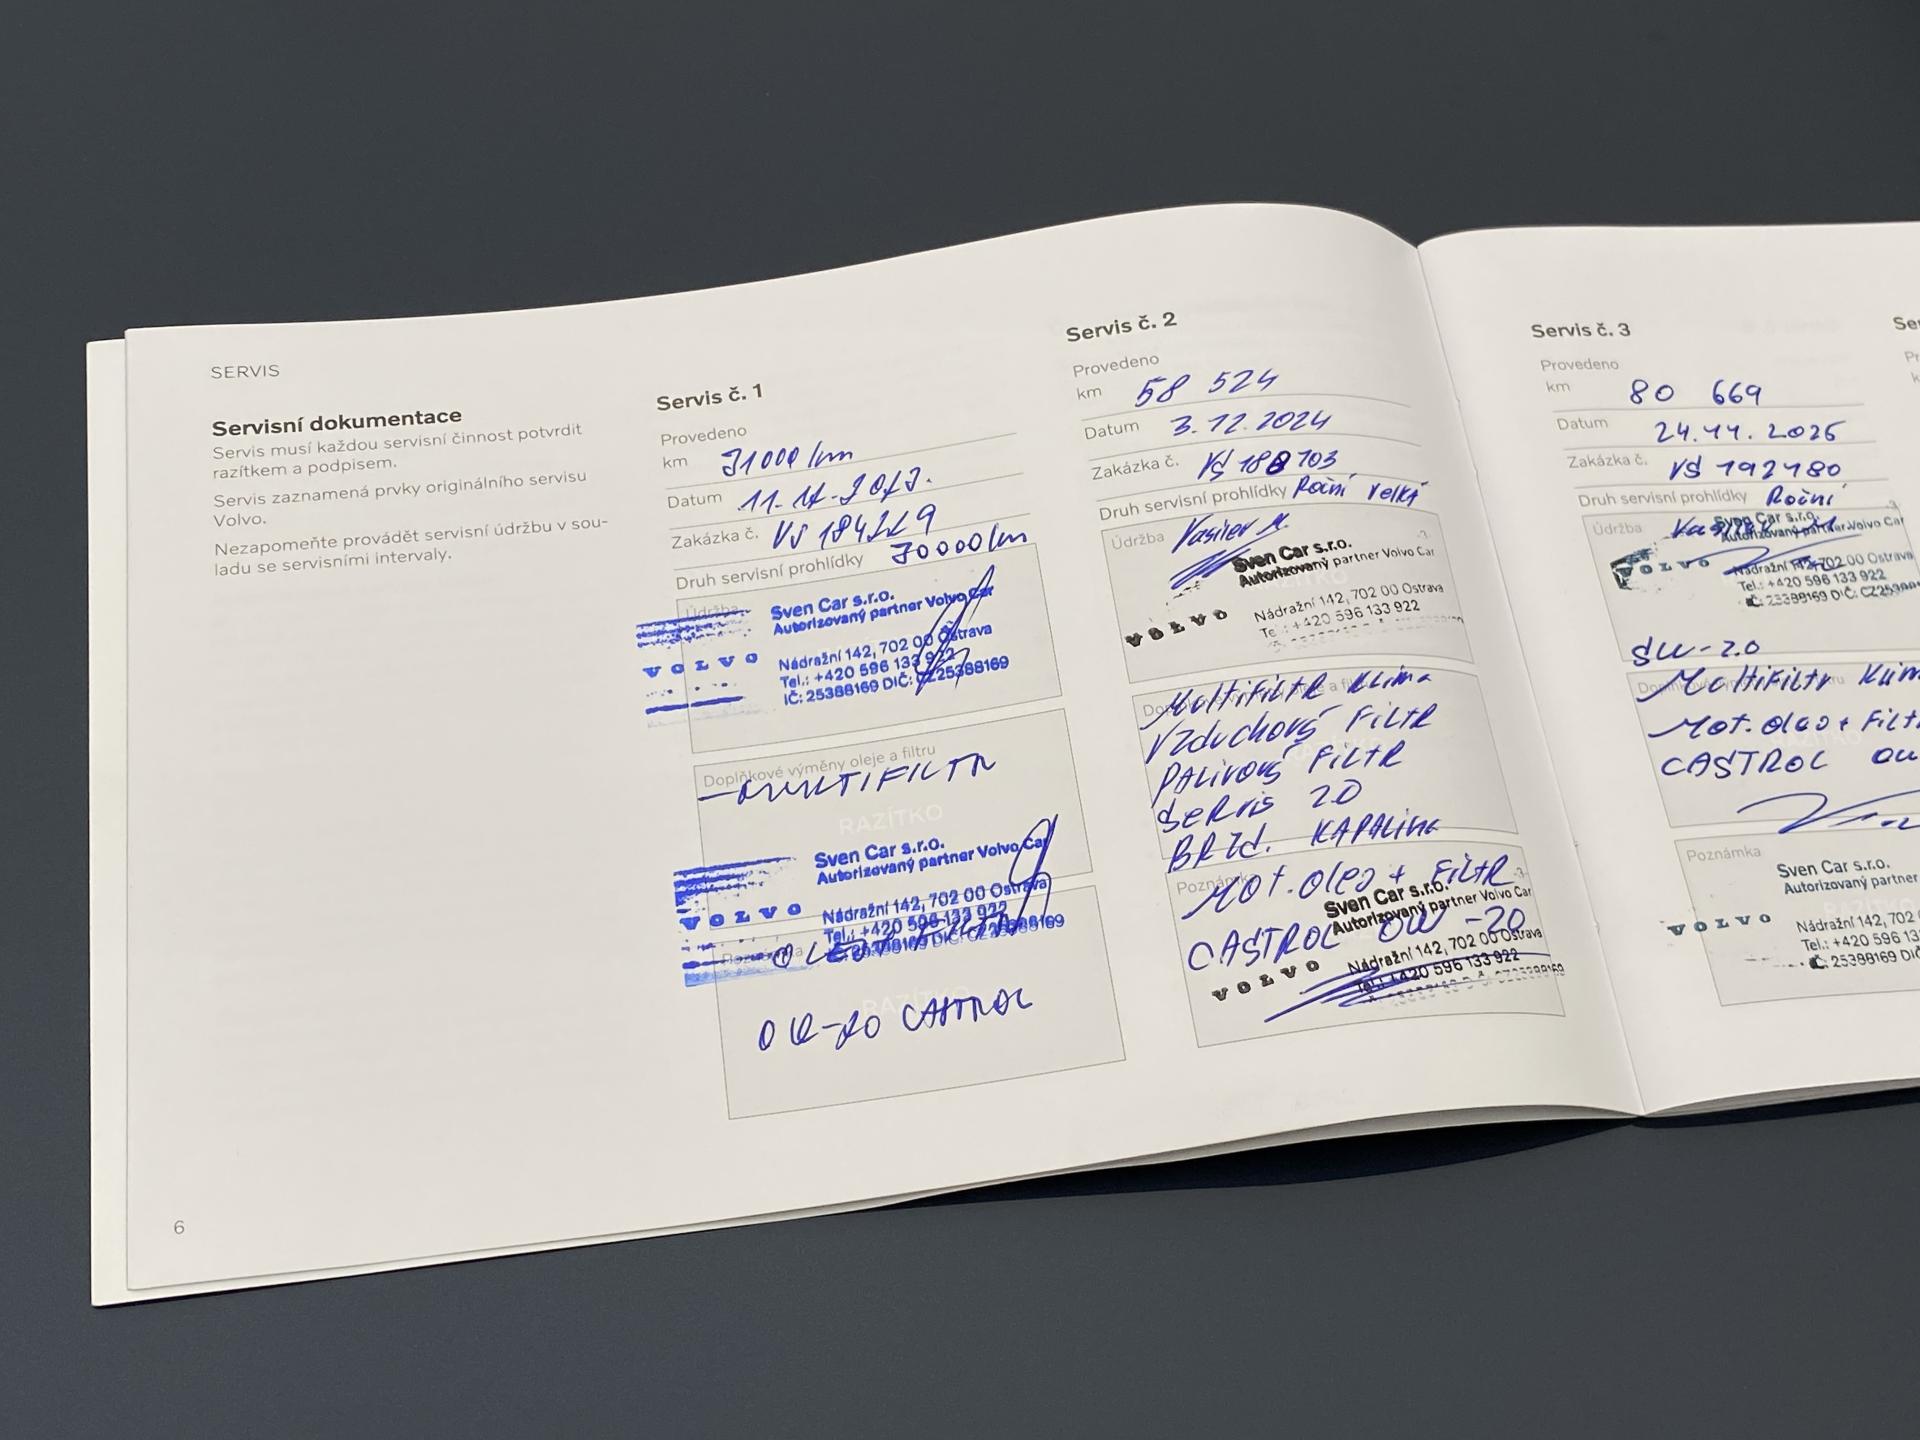 SERVIS
Servisní dokumentace
Servis musí každou servisní činnost potvrdit
razítkem a podpisem.
Servis zaznamená prvky originálního servisu
Volvo.
Nezapomeňte provádět servisní údržbu v sou-
ladu se servisními intervaly.
6
Servis č. 1
Provedeno
km 31000 km
Datum
Zakázka č. VS 184229
Druh servisní prohlídky 30000 km
Údržba
Sven Car s.r.o.
Autorizovaný partner Volvo Car
VOLVO
Nádražní 142, 702 00 Ostrava
Tel.: +420 596 133 922
IČ: 25388169 DIČ: CZ25388169
Doplňkové výměny oleje a filtru
MULTIFILTR
RAZÍTKO
Sven Car s.r.o.
Autorizovaný partner Volvo Car
VOLVO
Nádražní 142, 702 00 Ostrava
Tel.: +420 596 133 922
25388169 DIČ: CZ25388169
Poznámka
RAZÍTKO
0W-20 CASTROL
Servis č. 2
Provedeno
km 58 524
Datum 3.12.2024
Zakázka č. VŠ 188703
Druh servisní prohlídky Roční velká
Údržba Vasilev M.
Sven Car s.r.o.
Autorizovaný partner Volvo Car
VOLVO
Nádražní 142, 702 00 Ostrava
Te +420 596 133 922
Doplňkové výměny oleje a filtru
MultiFiltR Klima
Vzduchový FiltR
PALivový FiltR
SeRvis 2.0
BRzd. KAPALina
Poznámka
Mot. olej + FiltR
Sven Car s.r.o.
Autorizovaný partner Volvo Car
CASTROL 0W-20
VOLVO
Nádražní 142, 702 00 Ostrava
Tel.: +420 596 133 922
Servis č. 3
Provedeno
km 80 669
Datum 24.11.2025
Zakázka č. VŠ 192180
Druh servisní prohlídky Roční
Údržba
Sven Car s.r.o.
Autorizovaný partner Volvo Car
VOLVO
Nádražní 142, 702 00 Ostrava
Tel.: +420 596 133 922
IČ: 25388169 DIČ: CZ25388
SW-2.0
MultiFiltr Klim
Mot. olej + Filt
CASTROL 0W
Poznámka
Sven Car s.r.o.
Autorizovaný partner
VOLVO
Nádražní 142, 702 0
Tel.: +420 596 13
IČ: 25388169 DIČ